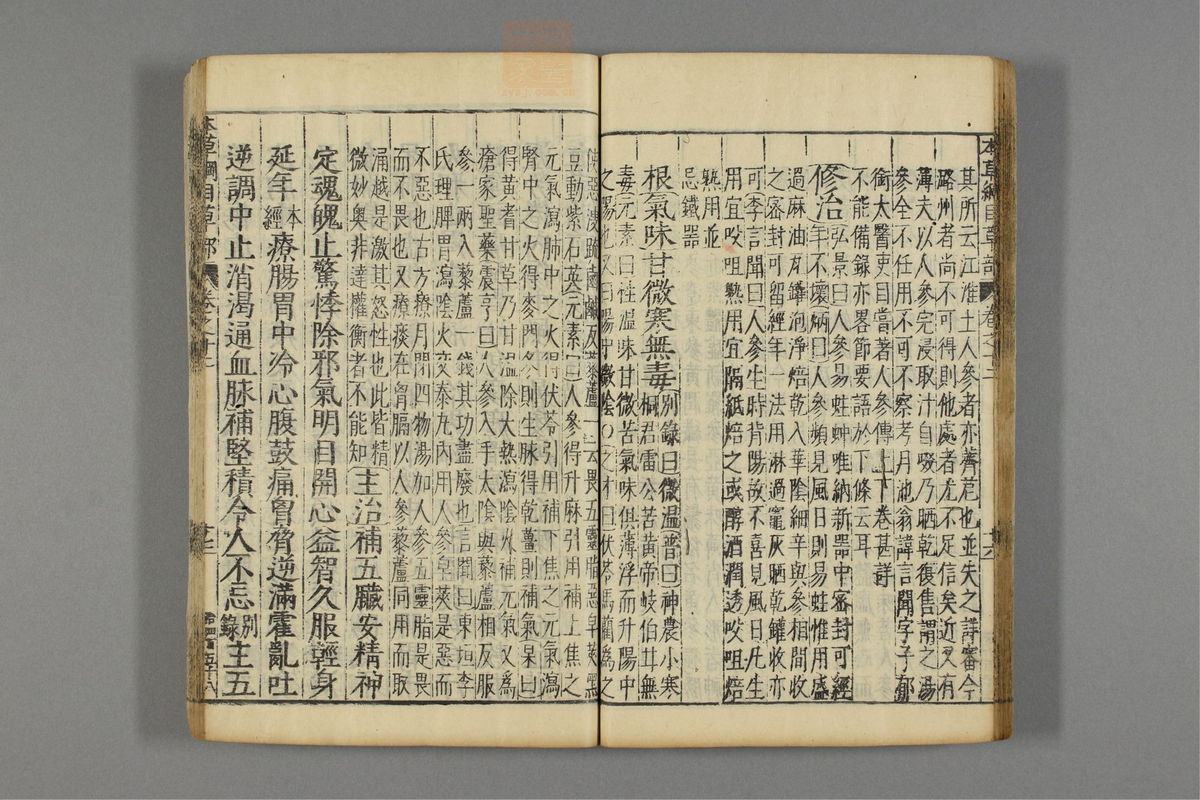 本草綱目草部 卷之十二 十六
其所云江淮土人參者亦薺苨也並失之詳審今
潞州者尚不可得則他處者尤不足信矣近又有
薄夫以人參完浸取汁自啜乃晒乾復售謂之湯
參全不任用不可不察考月池翁諱言聞字子郁
銜太醫吏目嘗著人參傳上下卷甚詳
不能備錄亦畧節要語於下條云耳
修治 弘景曰人參易蛀蚛唯納新器中密封可經
年不壞炳曰人參頻見風日則易蛀惟用盛
過麻油瓦罐泡淨焙乾入華陰細辛與參相間收
之密封可留經年一法用淋過竈灰晒乾罐收亦
可李言聞曰人參生時背陽故不喜見風日凡生
用宜㕮咀熟用宜隔紙焙之或醇酒潤透㕮咀焙
熟用並
忌鐵器
根氣味甘微寒無毒 別錄曰微溫普曰神農小寒
桐君雷公苦黃帝岐伯甘無
毒元素曰性溫味甘微苦氣味俱薄浮而升陽中
之陽也又曰陽中微陰○之才曰伏苓馬藺為之
使惡溲疏鹵鹹反藜蘆一云畏五靈脂惡皂莢黑
豆動紫石英元素曰人參得升麻引用補上焦之
元氣瀉肺中之火得伏苓引用補下焦之元氣瀉
腎中之火得麥門冬則生脉得乾薑則補氣杲曰
得黃耆甘草乃甘溫除大熱瀉陰火補元氣又為
瘡家聖藥震亨曰人參入手太陰與藜蘆相反服
參一兩入藜蘆一錢其功盡廢也言聞曰東垣李
氏理脾胃瀉陰火交泰丸內用人參皂莢是惡而
不惡也古方療月閉四物湯加人參五靈脂是畏
而不畏也又療痰在胷膈以人參藜蘆同用而取
涌越是激其怒性也此皆精
微妙奧非達權衡者不能知 主治補五臟安精神
定魂魄止驚悸除邪氣明目開心益智久服輕身
延年 本經 療腸胃中冷心腹鼓痛胷脅逆滿霍亂吐
逆調中止消渴通血脉補堅積令人不忘 別錄 主五
本草綱目草部 卷之十二 十六